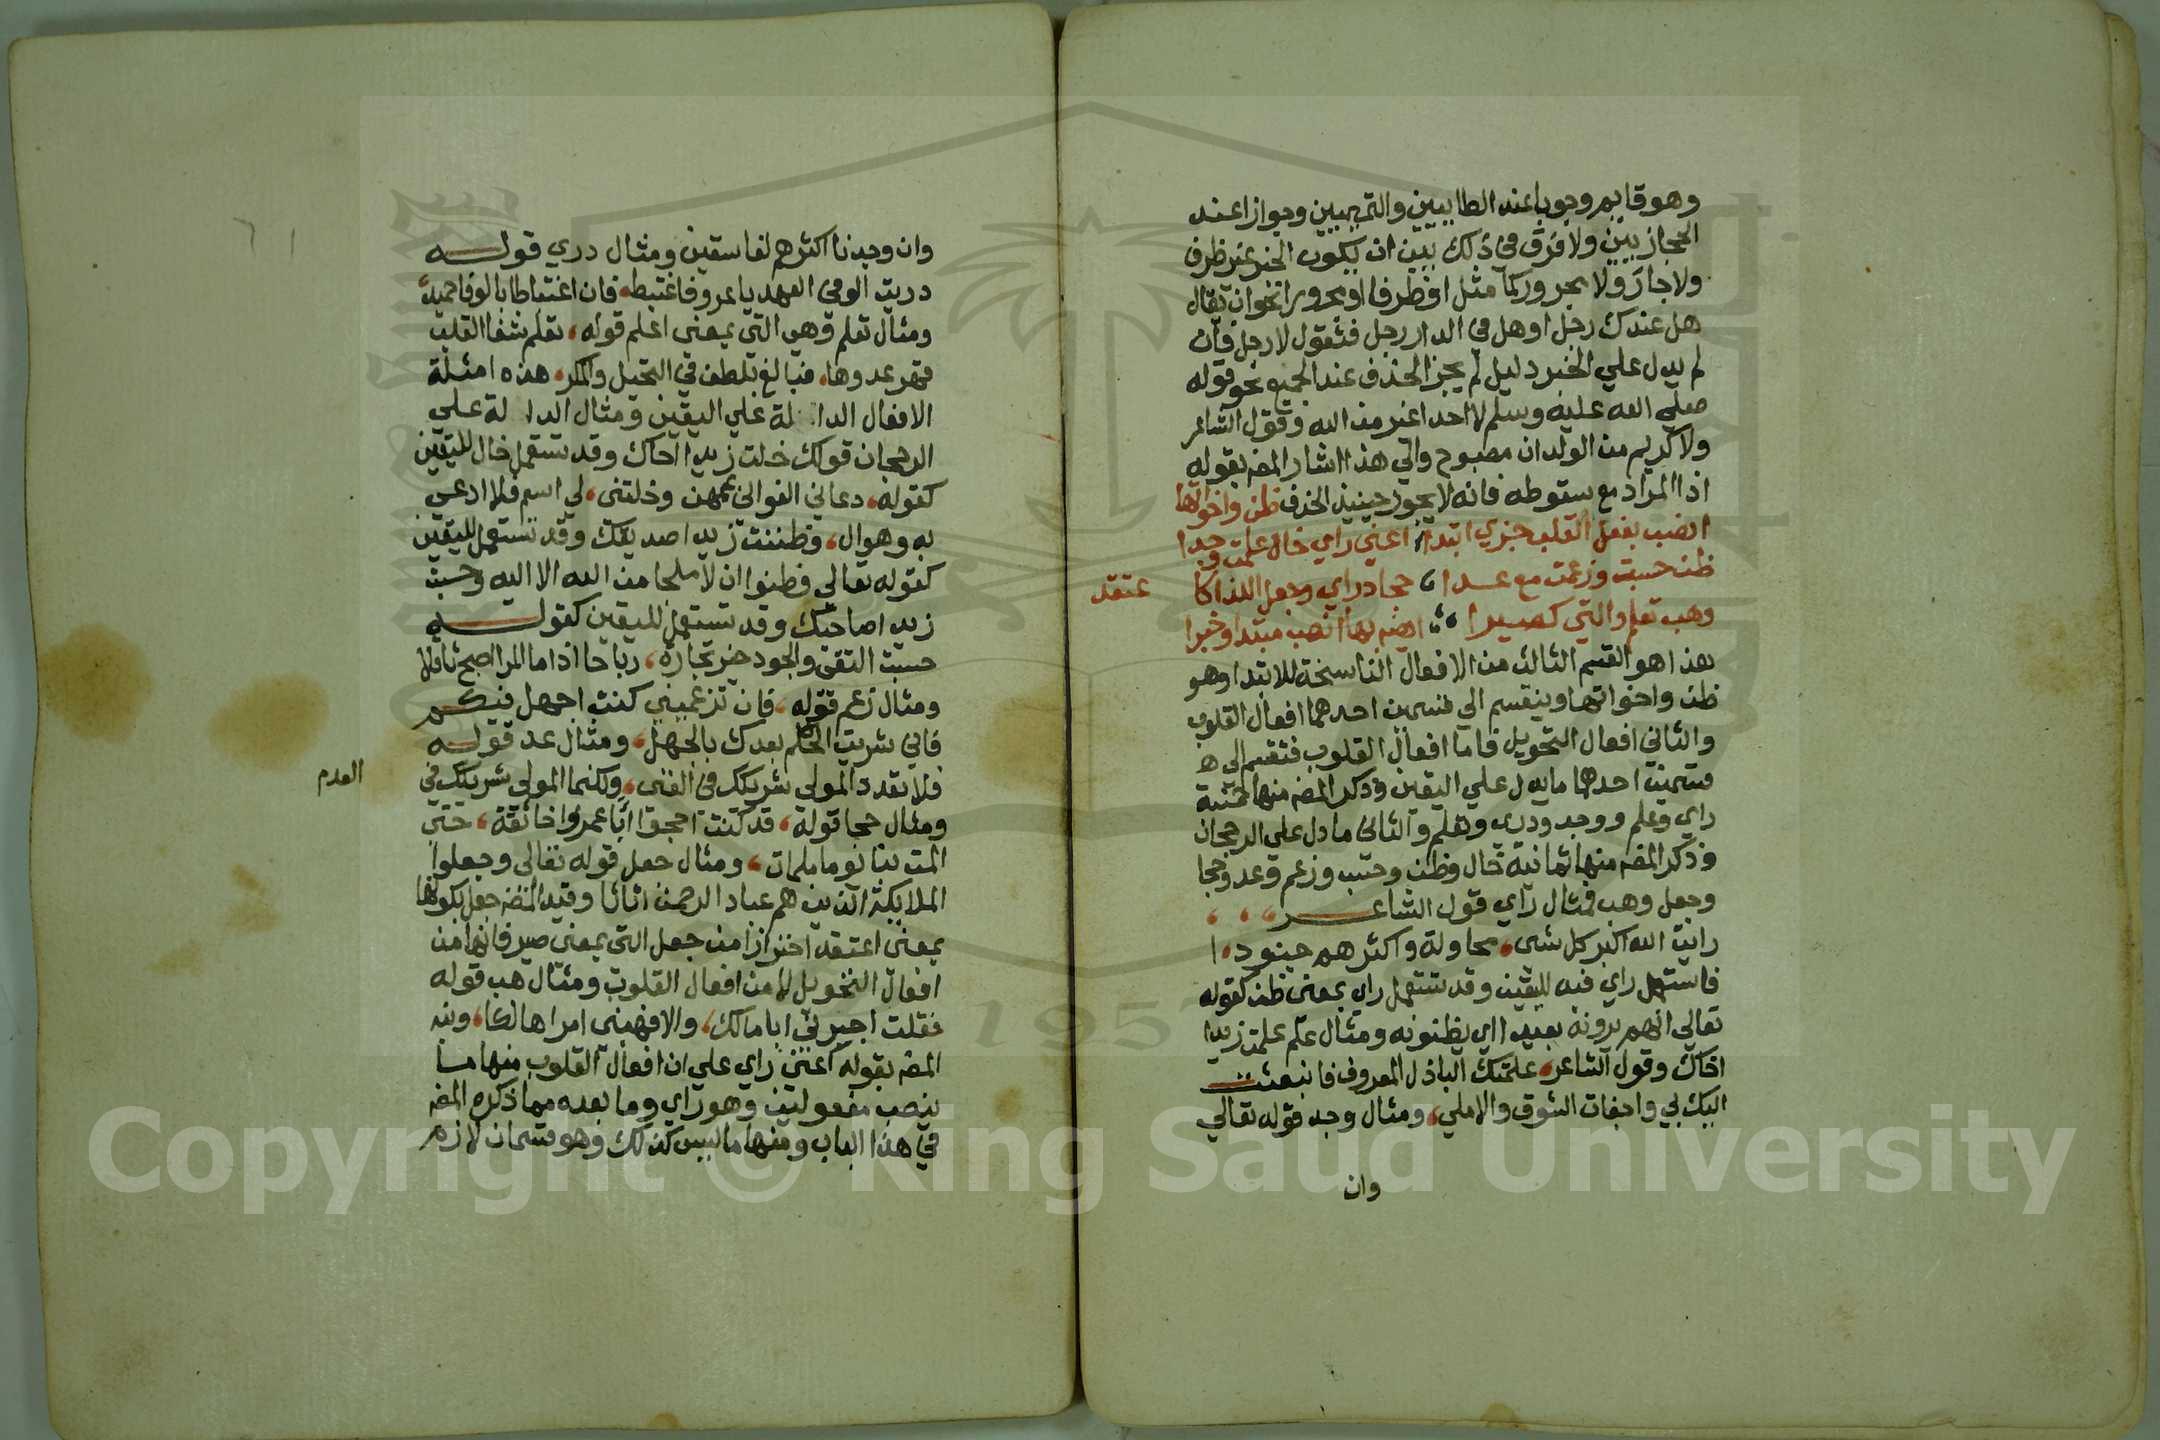 وهو قايم وجوبا عند الطاييين والتميميين وجوازا عند
الحجازيين ولا فرق في ذلك بين ان يكون الخبر غير ظرف
ولا جار ولا مجرور كما مثل او ظرفا او مجرورا نحو ان يقال
هل عندك رجل او هل في الدار رجل فتقول لا رجل فان
لم يدل علي الخبر دليل لم يجز الحذف عند الجميع نحو قوله
صلي الله عليه وسلم لا احد اغير من الله وقول الشاعر
ولا كريم من الولدان مصبوح والي هذا اشار المص بقوله
اذا المراد مع سقوطه فانه لا يجوز حينيذ الحذف ظن واخواتها
انصب بفعل القلب جزءي ابتدا اعني راي خال علمت وجدا
ظن حسبت وزعمت مع عدا حجا دري وجعل اللذ كا
عتقد
وهب تعلم والتي كصيرا ايضا بها انصب مبتدا وخبرا
هذا هو القسم الثالث من الافعال الناسخة للابتدا وهو
ظن واخواتها وينقسم الي قسمين احدهما افعال القلوب
والثاني افعال التحويل فاما افعال القلوب فتنقسم الي
قسمين احدهما ما يدل علي اليقين وذكر المص منها خمسة
راي وعلم ووجد ودري وتعلم والثاني ما دل علي الرجحان
وذكر المص منها ثمانية خال وظن وحسب وزعم وعد وحجا
وجعل وهب فمثال راي قول الشاعر
رايت الله اكبر كل شي محاولة واكثرهم جنودا
فاستعمل راي فيه لليقين وقد تستعمل راي بمعني ظن كقوله
تعالي انهم يرونه بعيدا اي يظنونه ومثال علم علمت زيدا
اخاك وقول الشاعر علمتك الباذل المعروف فانبعثت
اليك بي واجفات الشوق والاملي ومثال وجد قوله تعالي
وان
وان وجدنا اكثرهم لفاسقين ومثال دري قوله
دريت الوفي العهد يا عمرو فاغتبط فان اغتباطا بالوفا حميد
ومثال تعلم وهي التي بمعني اعلم قوله تعلم شفا القلب
قهر عدوها فبالغ بلطف في التحيل والمكر هذه امثلة
الافعال الدالة علي اليقين ومثال الدالة علي
الرجحان قولك خلت زيدا اخاك وقد تستعمل خال لليقين
كقوله دعاني الغواني عمهن وخلتني لي اسم فلا ادعي
به وهوال وظننت زيدا صديقك وقد تستعمل لليقين
كقوله تعالي وظنوا ان لا ملجا من الله الا اليه وحسبت
زيدا صاحبك وقد تستعمل لليقين كقوله
حسبت التقي والجود خير تجارة رباحا اذا ما المرا اصبح ثاقلا
ومثال زعم قوله فان تزعميني كنت اجهل فيكم
فاني شريت الحلم بعدك بالجهل ومثال عد قوله
فلا تعدد المولي شريكك في الغني ولكنما المولي شريكك في
العدم
ومثال حجا قوله قد كنت احجوا ابا عمرو اخا ثقة حتي
المت بنا يوما ملمات ومثال جعل قوله تعالي وجعلوا
الملايكة الذين هم عباد الرحمن اناثا وقيد المص جعل بكونها
بمعني اعتقد احترازا من جعل التي بمعني صير فانها من
افعال التحويل لا من افعال القلوب ومثال هب قوله
فقلت اجيرني ابا مالك والا فهبني امرا هالكا ونبه
المص بقوله اعني راي علي ان افعال القلوب منها ما
ينصب مفعولين وهو راي وما بعده مما ذكره المص
في هذا الباب ومنها ما ليس كذلك وهو قسمان لازم
Copyright © King Saud University
195